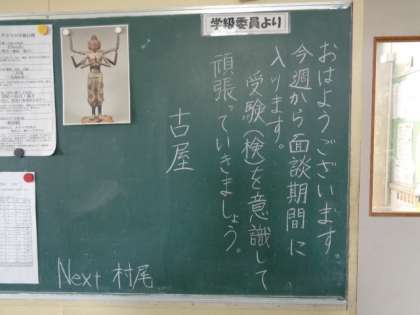 学級委員より
おはようございます。
今週から面談期間に
入ります。
受験(検)を意識して
頑張っていきましょう。
古屋
Next 村尾